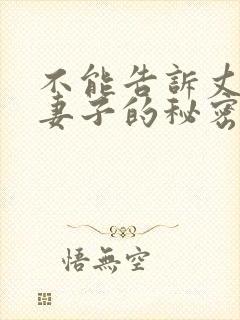 不能告訴丈
妻子的秘密
悟無空